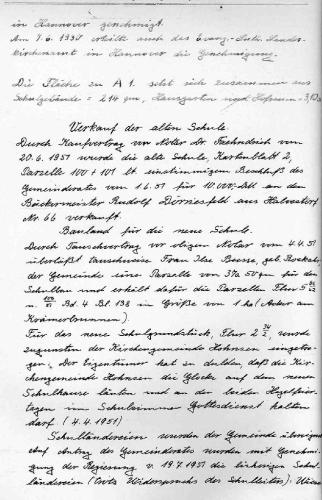 in Hannover genehmigt.
Am 7.6. 1951 erhielte auch das Evang.-Luth. Landes-
kirchenamt in Hannover die Genehmigung.
Die Fläche zu A 1. setzt sich zusammen aus
Schulgebäude = 214 qm, Hausgarten und Hofraum =
Verkauf der alten Schule.
Durch Kaufvertrag vor Notar Dr. vom
20.6. 1951 wurde die alte Schule, Kartenblatt 2,
Parzelle 100 + 101 lt. einstimmigem Beschluß des
Gemeinderates vom 1.6.51 für 10.000,- an den
Bäckermeister Rudolf Dörriesfeld aus Halvestorf
Nr. 66 verkauft.
Bauland für die neue Schule.
Durch Tauschvertrag vor obigen Notar vom 4.4. 51
überläßt tauschweise Frau Ilse Beesse, geb.
der Gemeinde eine Parzelle von 37a 50 qm für den
Schulbau und erhält dafür die Parzellen Flur 5
u. Bd. 4 Bl. 138 in Größe von 1 ha (Acker am
Krämerbrunnen).
Für das neue Schulgrundstück, Flur 2, wurde
zugunsten der Kirchengemeinde Hohnsen eingetra-
gen. Der Eigentümer hat zu dulden, daß die Kir-
chengemeinde Hohnsen die Glocke auf dem neuen
Schulhause läuten und an den beiden
tagen im Schulzimmer Gottesdienst halten
darf. (4.4. 1951)
Schulländereien wurden der Gemeinde
Auf Antrag des Gemeinderates wurden mit Genehmi-
gung der Regierung v. 19.7. 1951 die bisherigen Schul-
ländereien (trotz Widerspruchs des Schulleiters):